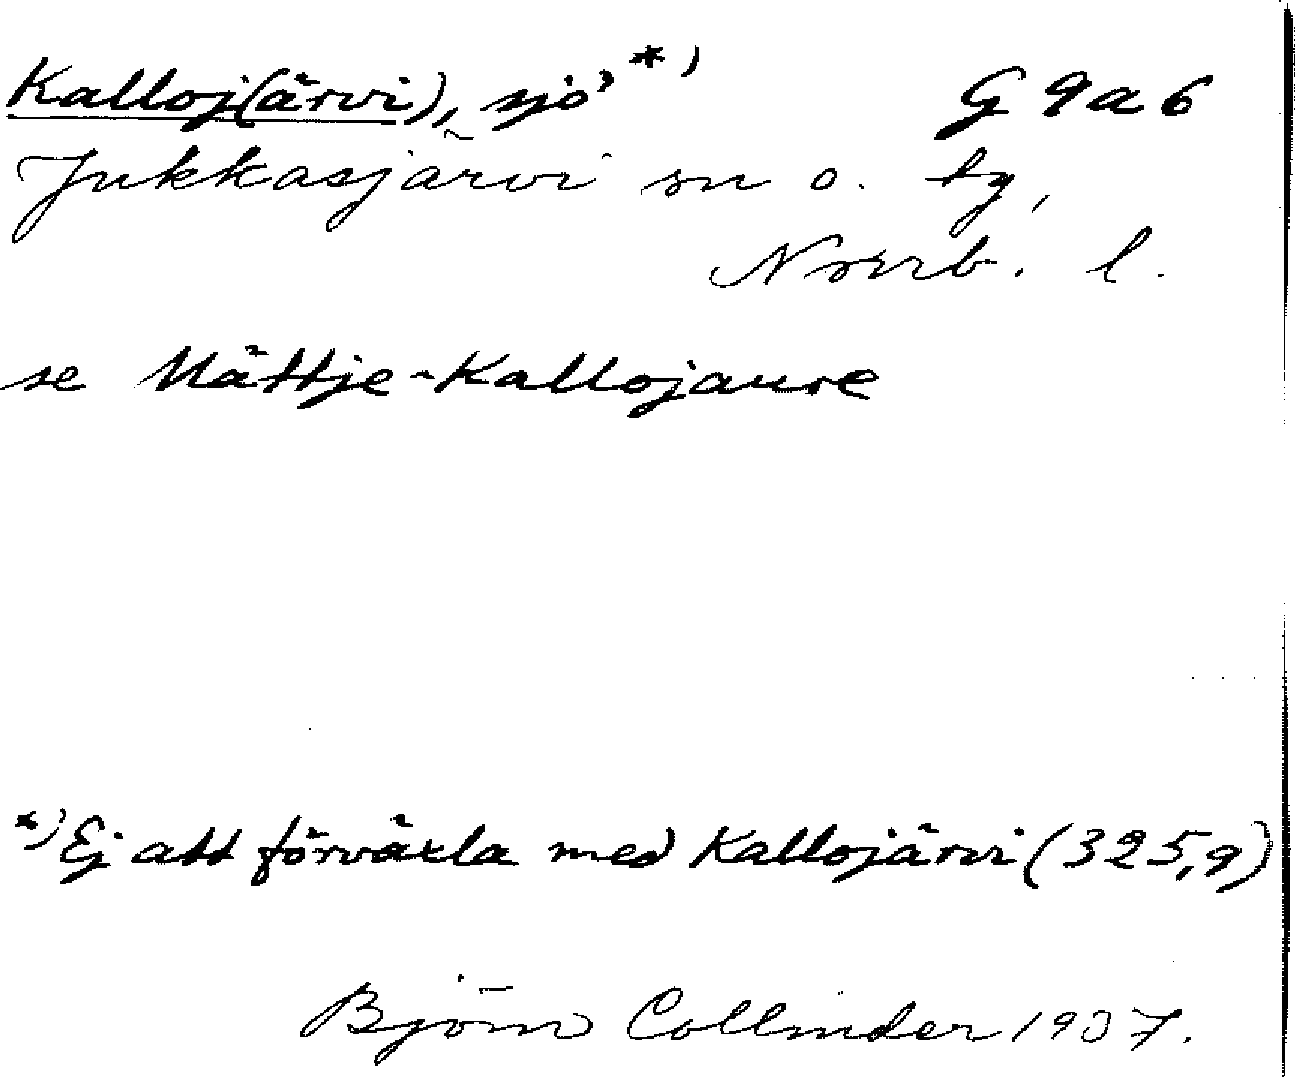 Kalloj(ärvi), sjö *) G 9 a 6
Jukkasjärvi sn o. tg,
Norrb. l.
se Mättje-Kallojaure
*) Ej att förväxla med Kallojärvi (325,9)
Björn Collinder 1937.